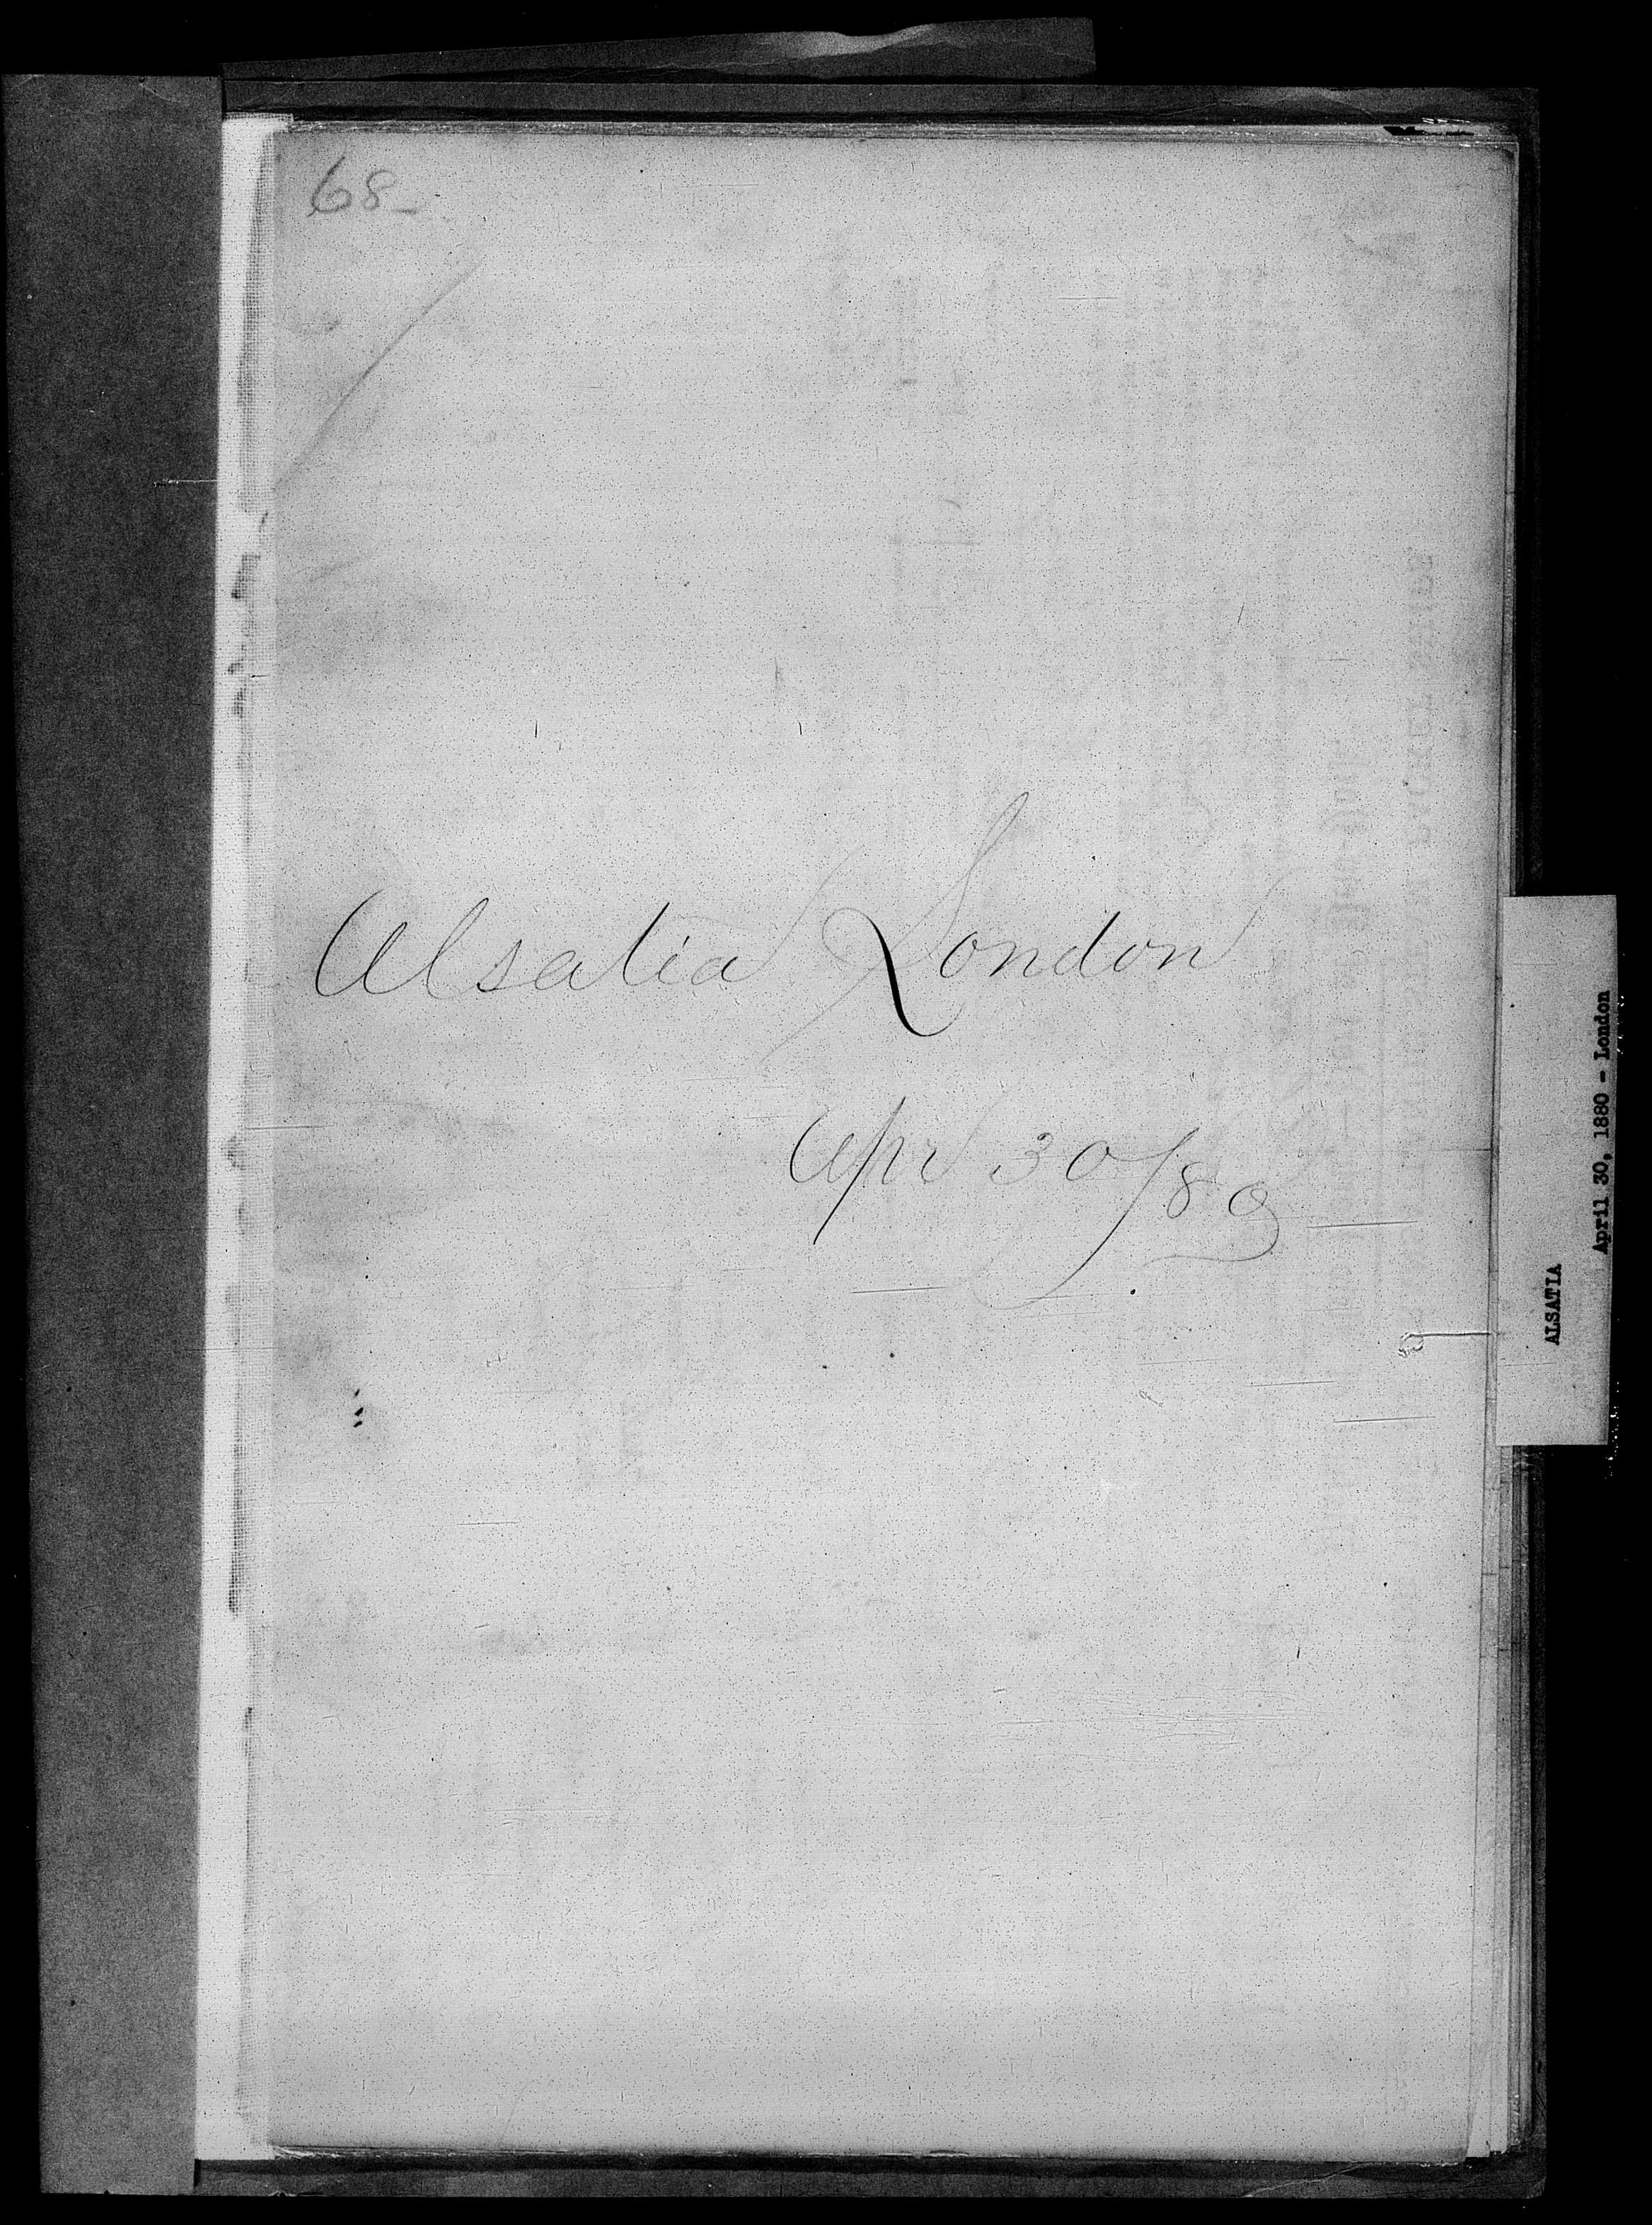 68-
Alsatia London
Apr 30/80
ALSATIA
April 30, 1880 - London